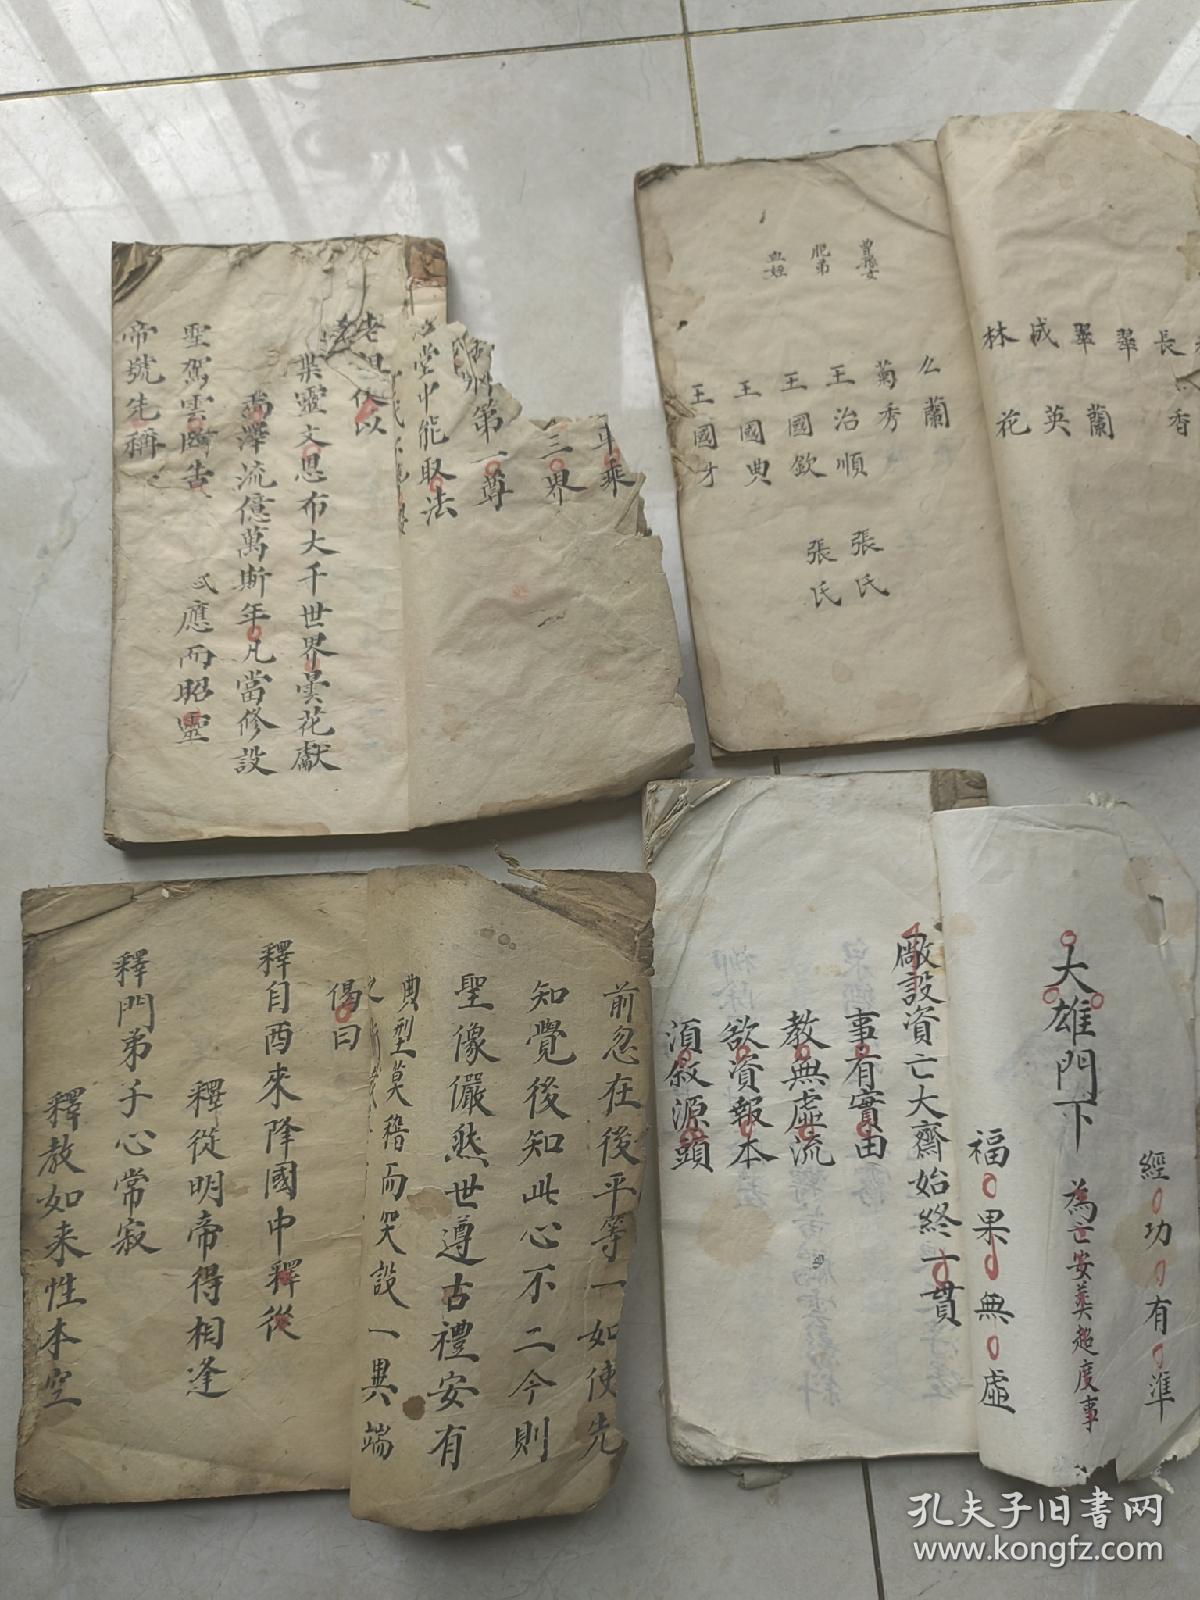 三界
第一尊
堂中能取法
葉靈文恩布大千世界曇花獻
澤流億萬斯年凡當修設
聖駕雲
應而昭靈
帝號先稱
長
香
翠
翠蘭
成英
林花
么蘭
菊秀
王治順 張氏
王國欽 張氏
王國典
王國才
肥弟
血姪
前忽在後平等一如使先
知覺後知此心不二今則
聖像儼然世遵古禮安有
典型莫稽而哭設一異端
偈曰
釋自酉來降國中釋從
釋從明帝得相逢
釋門弟子心常寂
釋教如来性本空
經功有準
大雄門下 為亡安葬超度事
福果無虛
啟設資亡大齋始終一貫
事有實由
教無虛流
欲資報本
須敘源頭
孔夫子旧书网
www.kongfz.com